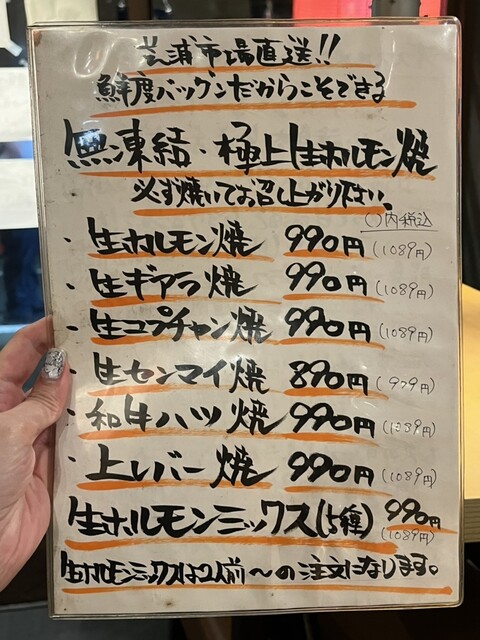 芝浦市場直送!!
鮮度バツグンだからこそできる
無凍結・極上生ホルモン焼
必ず焼いてお召し上がり下さい。
()内税込
・生ホルモン焼 990円(1089円)
・生ギアラ焼 990円(1089円)
・生コプチャン焼 990円(1089円)
・生センマイ焼 890円(979円)
・和牛ハツ焼 990円(1089円)
・上レバー焼 990円(1089円)
生ホルモンミックス(5種) 990円(1089円)
生ホルモンミックスは2人前〜の注文になります。